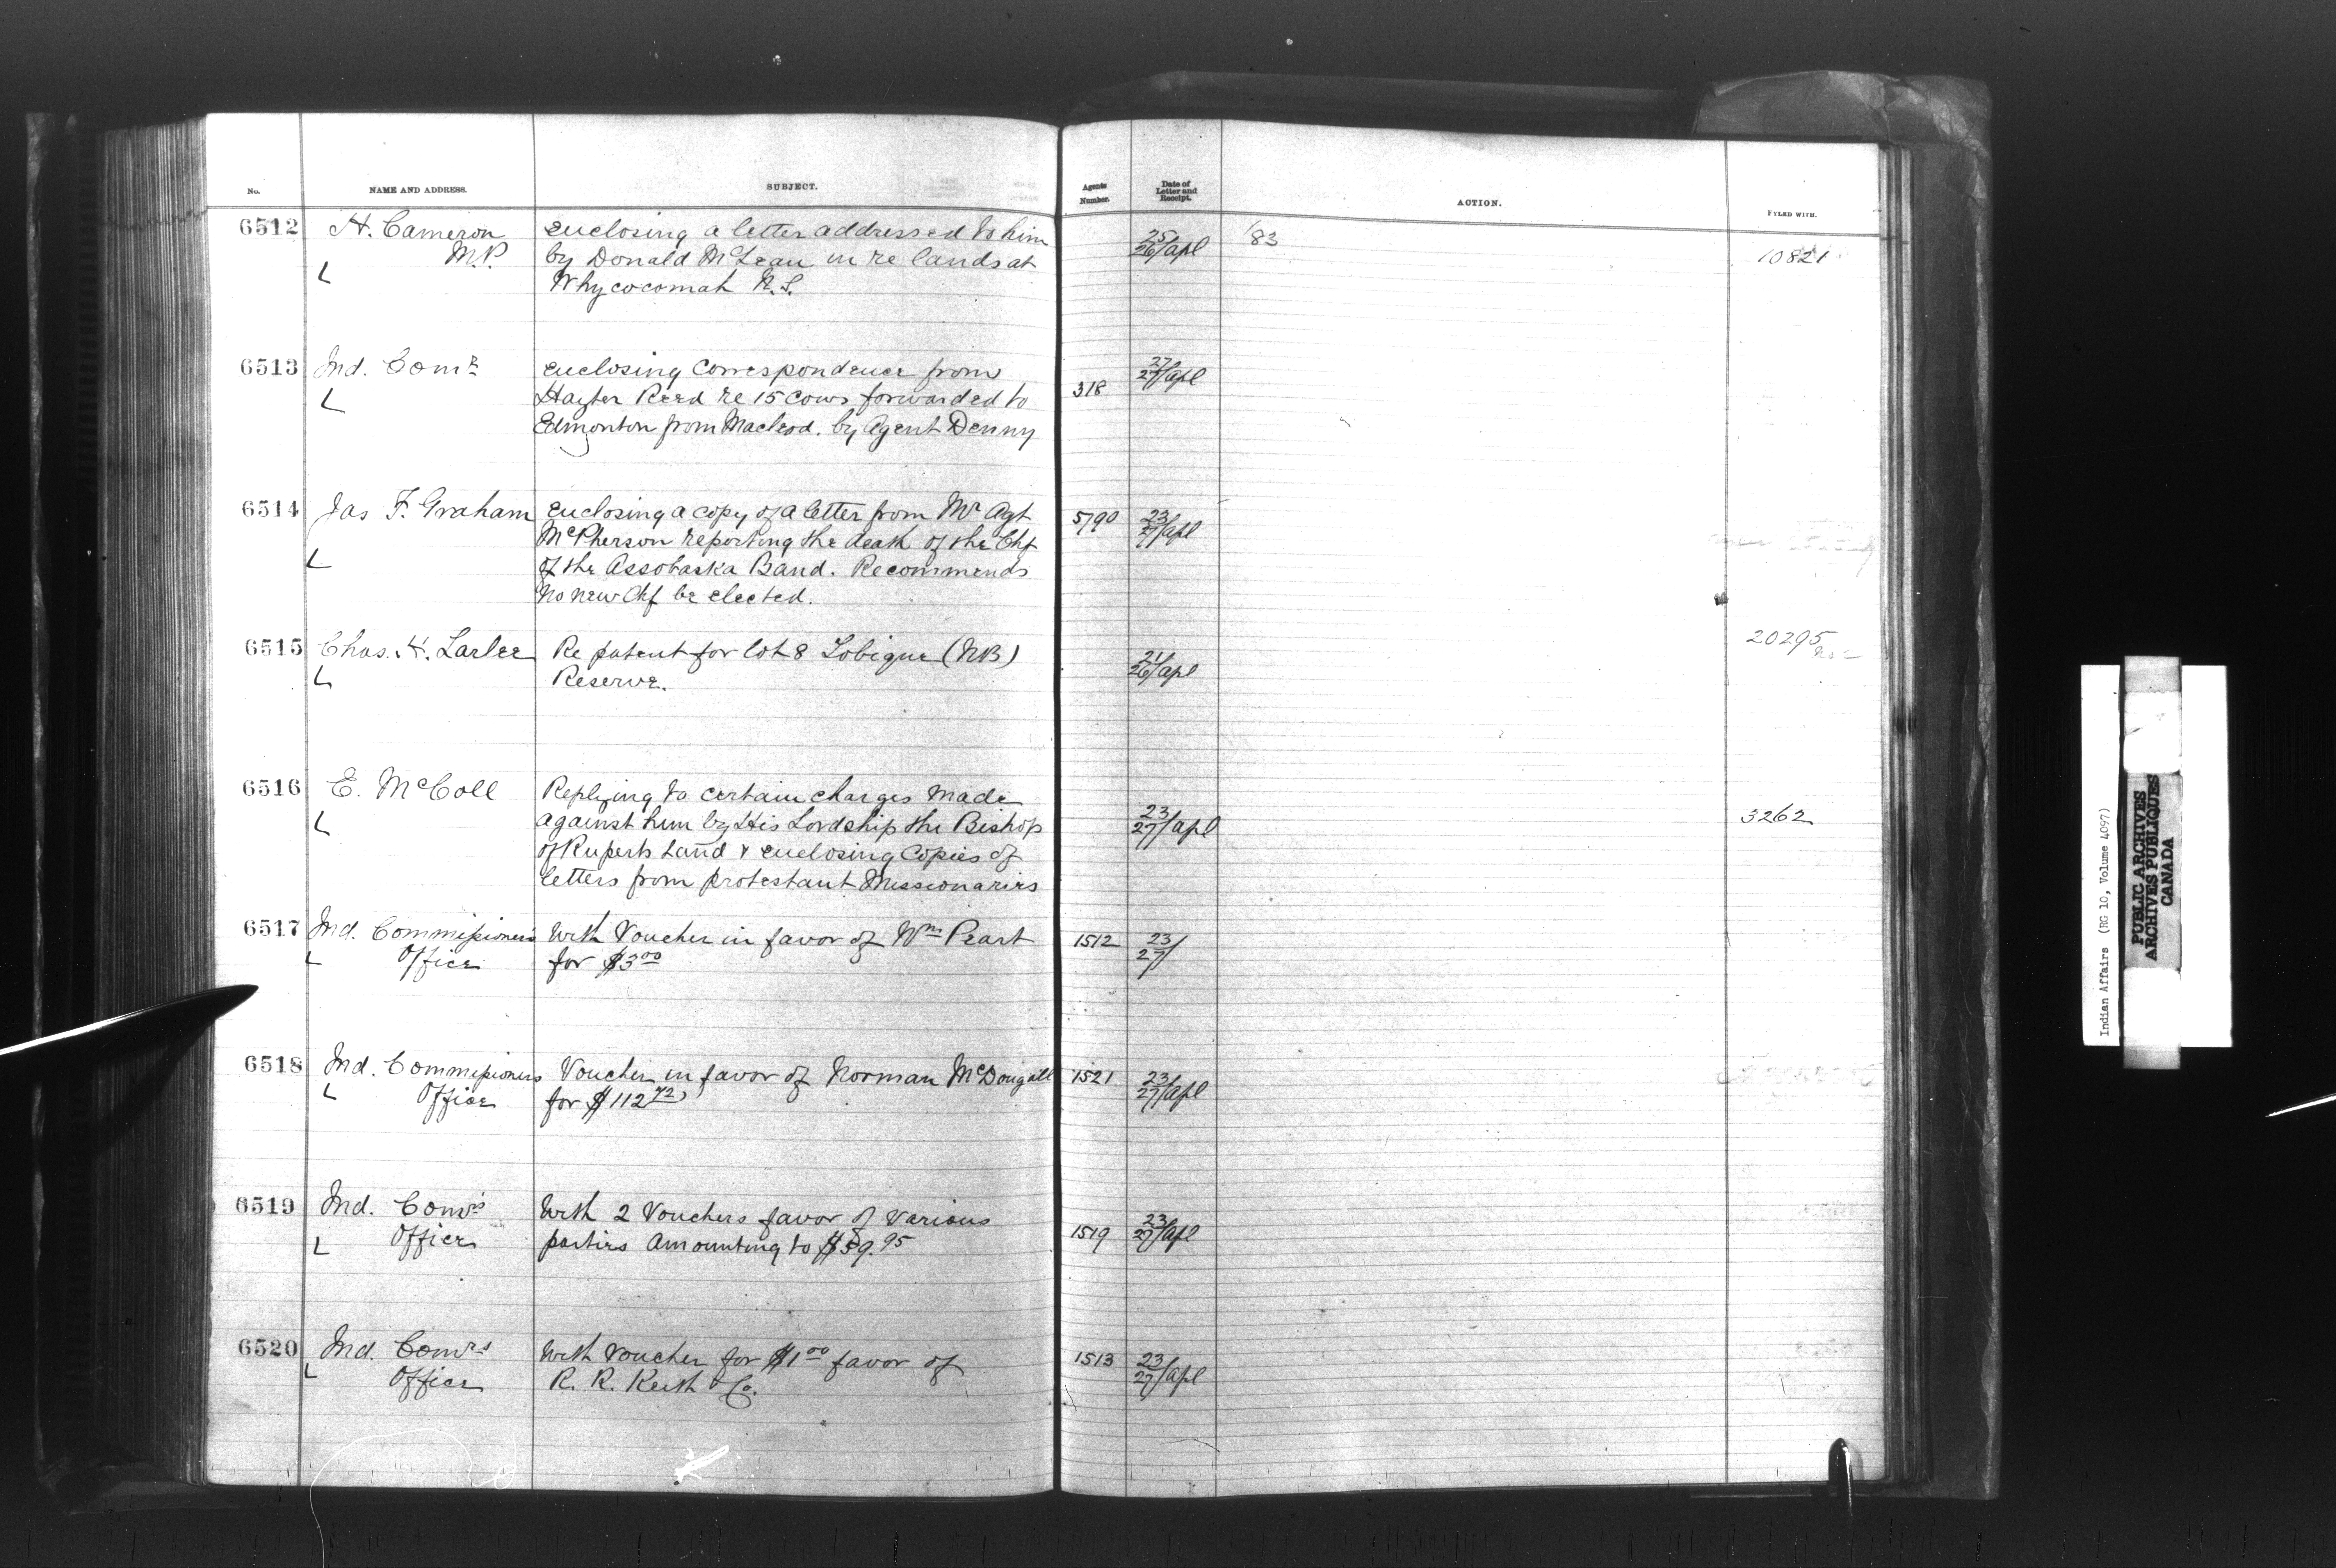 No. NAME AND ADDRESS. SUBJECT. Agents Number. Date of Letter and Receipt. ACTION. FYLED WITH.
6512 H. Cameron enclosing a letter addressed to him 25/26/apl /83 10821
M.P. by Donald McLean in re lands at
Whycocomah N.S.
6513 Ind. Comr enclosing Correspondence from 318 27/27/apl
Hayter Reed re 15 cows forwarded to
Edmonton from Macleod. by Agent Denny
6514 Jas F. Graham enclosing a copy of a letter from Mr Agt 5790 23/27/apl
McPherson reporting the death of the Chf
of the Assobaska Band. Recommends
no new Chf be elected.
6515 Chas. H. Larlee Re patent for lot 8 Tobique (NB) 21/26/apl 20295
Reserve.
6516 E. McColl Replying to certain charges made 23/27/apl 3262
against him by His Lordship the Bishop
of Ruperts Land & enclosing Copies of
letters from protestant Missionaries
6517 Ind. Commissioners With Voucher in favor of Wm Peart 1512 23/27/
Office for $3 00
6518 Ind. Commissioners Voucher in favor of Norman McDougall 1521 23/27/apl
Office for $112 72
6519 Ind. Comrs With 2 Vouchers favor of various 1519 23/27/apl
Office parties amounting to $59.95
6520 Ind. Comrs With Voucher for $1 00 favor of 1513 23/27/apl
Office R. R. Keith & Co.
Indian Affairs (RG 10, Volume 4097)
PUBLIC ARCHIVES
ARCHIVES PUBLIQUES
CANADA